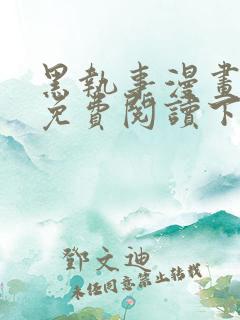 黑執事漫畫
免費閱讀下
鄧文迪
未經同意禁止轉載